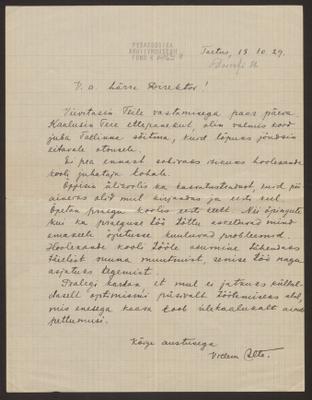 PEDAGOOGIKA
ARHIIVMUUSEUM
FOND K
Tartus, 13. 10. 29.
V. a. härra Direktor!
Viivitasin Teile vastamisega paar päeva.
Kaalusin Teie ettepanekut, olin valmis kord
juba Tallinna sõitma, kuid lõpuks jõudsin
eitavale otsusele.
Ei pea ennast sobivaks isikuks hoolesande
kooli juhataja kohale.
Õppisin ülikoolis ka kasvatusteadust, kuid
aineiks olid mul kirjandus ja eesti keel.
Õpetan praegu koolis eesti keelt. Nii õpingute
kui ka praeguse töö tõttu huvitavad mind
emakeele õpetusse kuuluvad probleemid.
Hoolesande kooli tööle asumine tähendaks
täielist muutmist, senise töö
asjatuks tegemist.
Pealegi kardan, et mul ei jätkuks küllal-
daselt optimismi püsivalt töötamiseks alal,
mis enesega kaasa toob ülekaalukalt ainult
pettumusi.
Kõige austusega